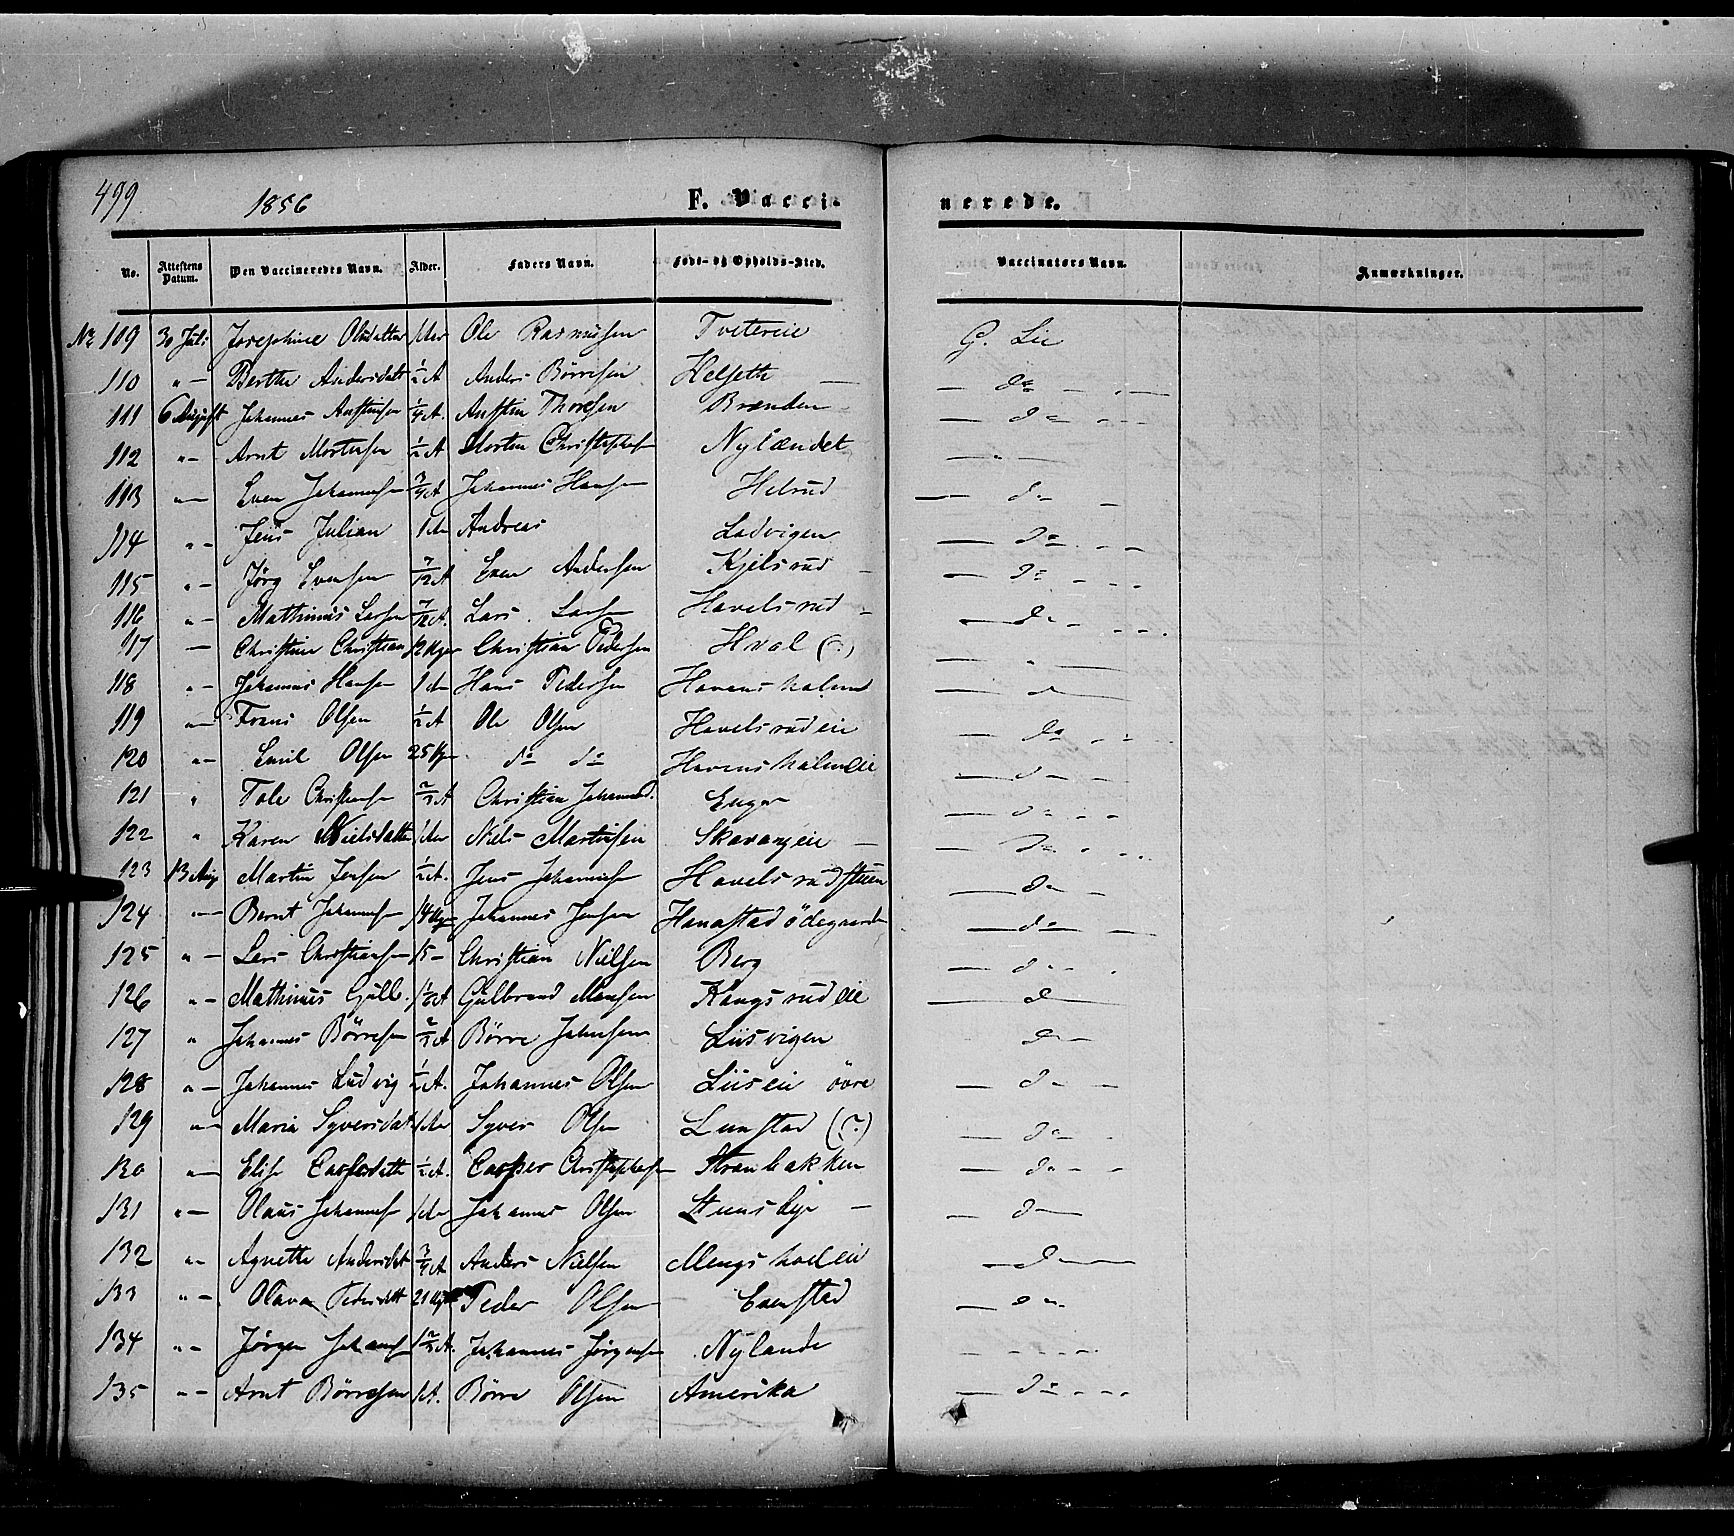 499 1856 F. Vacci- nerede.
No. Attestens Datum. Den Vaccineredes Navn. Alder. Faders Navn. Føde- og Opholds-Sted. Vaccinators Navn. Anmærkninger.
No 109 30 Juli Josephine Olsdatter 1 Ole Rasmussen Tvetereie G. Lie
110 "— Berthe Andersdatt 1/2 A Anders Börresen Helseth — do —
111 6 August Johannes Anstinsen 1/4 A. Anstin Thoresen Brænden — do —
112 "— Arnt Mortensen 1/2 A Morten Christophers Nylændet — " —
113 "— Even Johannesen 3/4 A Johannes Hansen Helsrud — do —
114 "— Jens Julian 1 Andreas Ladvigen — do —
115 "— Jørg Evensen 7/12 A Even Andersen Kjelsrud — do —
116 "— Mathinus Larsen 7/12 A. Lars Larsen Havelsrud — do —
117 — Christine Christian 12 Uger Christian Pedersen Hval (?) — " —
118 "— Johannes Hansen 1 Hans Pedersen Havensholm — d —
119 "— Frans Olsen 1/2 A Ole Olsen Havelsrudeie — do —
120 "— Emil Olsen 25 Ug. do do Havensholmeie — do —
121 " Tole Christiansen 2/3 A Christian Johannes. Enger — do —
122 " Karen Nielsdatter 1 Niels Martinsen Skavangeie — do —
123 13 Aug Martin Jensen 1/2 A. Jens Johannesen Havelsrudstuen — do —
124 "— Bernt Johannesen 14 Uger Johannes Jensen Hanastad ödegaarde — do —
125 "— Lars Christiansen 15 — Christian Nielsen Berg — do —
126 "— Mathinus Gulb. 1/2 A Gulbrand Monsen Kangsrudeie — d —
127 " Johannes Börresen 2/3 A Börre Johnsen Liisvigen do —
128 "— Johannes Ludvig 1/2 A. Johannes Olsen Liiseie övre — do —
129 "— Maria Syversdat 1 Syver Olsen Lunstad (?) — do —
130 "— Elise Caspersdatt 1/2 A. Casper Christophersen Strænbakken — do —
131 "— Olaus Johannes 1 Johannes Olsen — do —
132 "— Agnethe Andersdat 3/4 A Anders Nielsen Mengshoeleie — do —
133 "— Olava Pedersdatt 21 Ug Peder Olsen Evenstad — do —
134 "— Jørgen Johannes 1 2/3 A. Johannes Jørgensen Nylande — — —
135 "— Arnt Börresen 1 A. Börre Olsen Amerika — do —